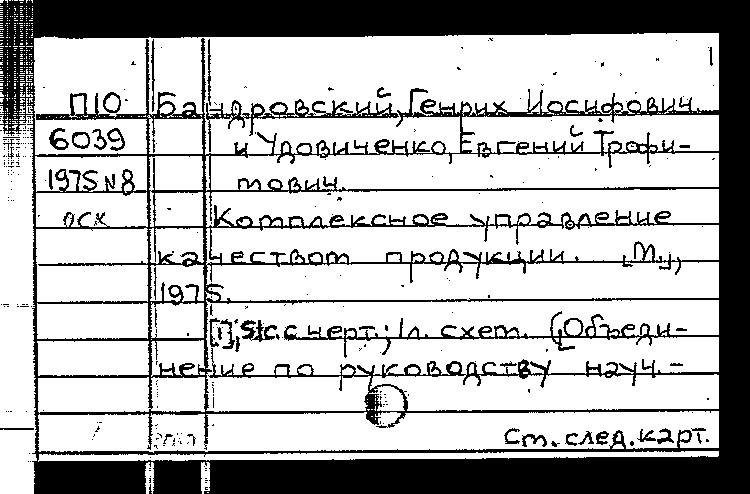 1
П10 Бандровский, Генрих Иосифович
6039 и Удовиченко, Евгений Трофи-
1975 N8 мович.
осх Комплексное управление
качеством продукции. [М.],
1975.
[1], с черт.; 1л. схем. (Объеди-
нение по руководству науч.-
См. след. карт.